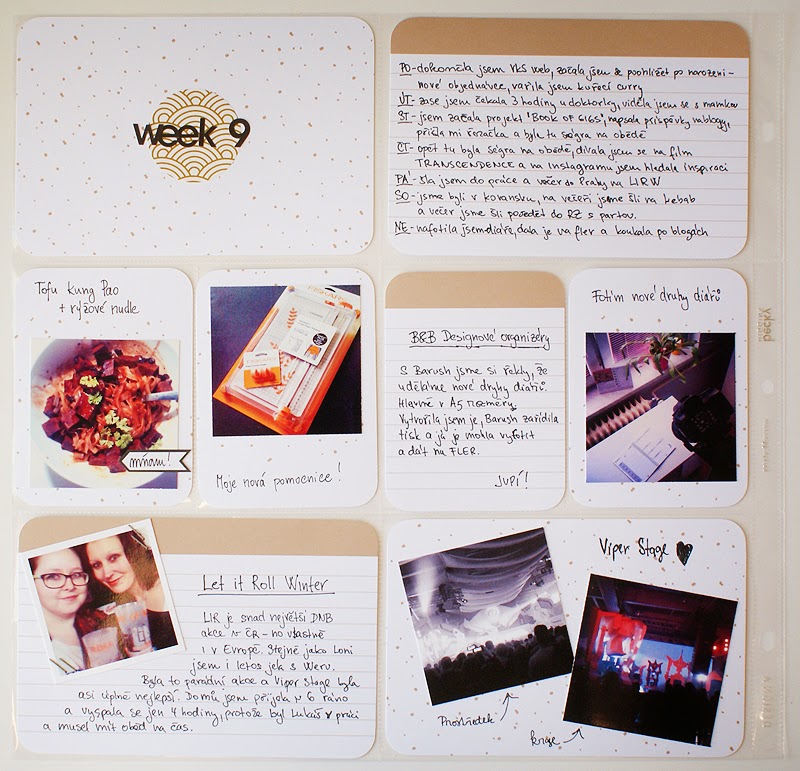 week 9
PO - dokončila jsem VKS web, začala jsem se poohlížet po narozeni-
nové objednávce, vařila jsem kuřecí curry
ÚT - zase jsem čekala 3 hodiny u doktorky, viděla jsem se s mamkou
ST - jsem začala projekt 'BOOK OF GIGS', napsala příspěvky na blogy,
přišla mi řezačka a byla tu ségra na obědě
ČT - opět tu byla ségra na obědě, dívala jsem se na film
TRANSCENDENCE a na Instagramu jsem hledala inspiraci
PÁ - šla jsem do práce a večer do Prahy na LIRW
SO - jsme byli v kovansku, na večeři jsme šli na kebab
a večer jsme šli posedět do RZ s partou.
NE - nafotila jsem diáře, dala je na fler a koukala po blogách
Tofu Kung Pao
+ rýžové nudle
mňam!
FISKARS
Moje nová pomocnice!
B&B Designové organizéry
S Barush jsme si řekly, že
uděláme nové druhy diářů.
Hlavně v A5 rozměru.
Vytvořila jsem je, Barush zařídila
tisk a já je mohla vyfotit
a dát na FLER.
JUPÍ!
Fotím nové druhy diářů
becky
Let it Roll Winter
LIR je snad největší DNB
akce v ČR - no vlastně
i v Evropě. Stejně jako loni
jsem i letos jela s Weru.
Byla to parádní akce a Viper Stage byla
asi úplně nejlepší. Domů jsem přijela v 6 ráno
a vyspala se jen 4 hodiny, protože byl Lukáš v práci
a musel mít oběd na čas.
Viper Stage
Prostředek
kraje